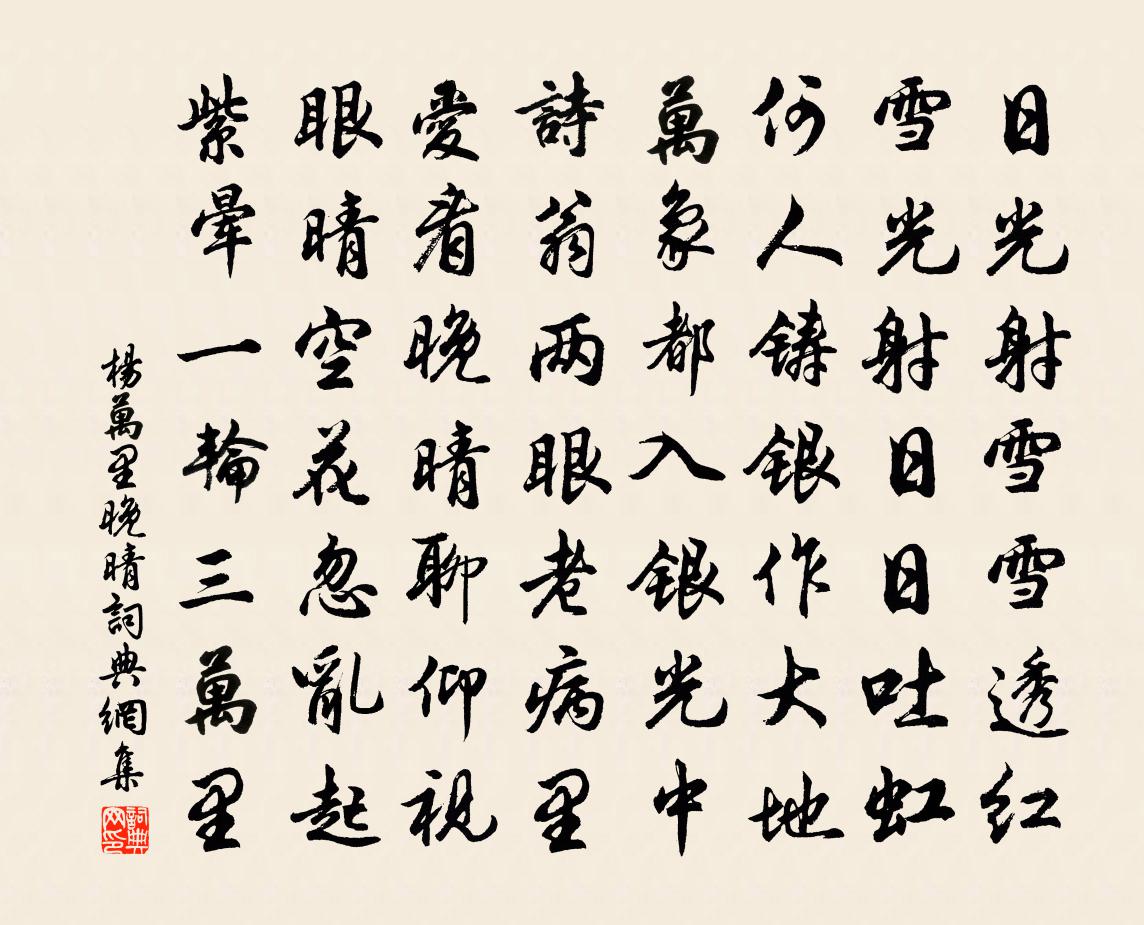 日光射雪雪透红
雪光射日日吐虹
何人鑄銀作大地
萬象都入銀光中
詩翁两眼老病里
愛看晚晴聊仰視
眼晴空花忽亂起
紫暈一輪三萬里
楊萬里晚晴詞典網集
詞典網印